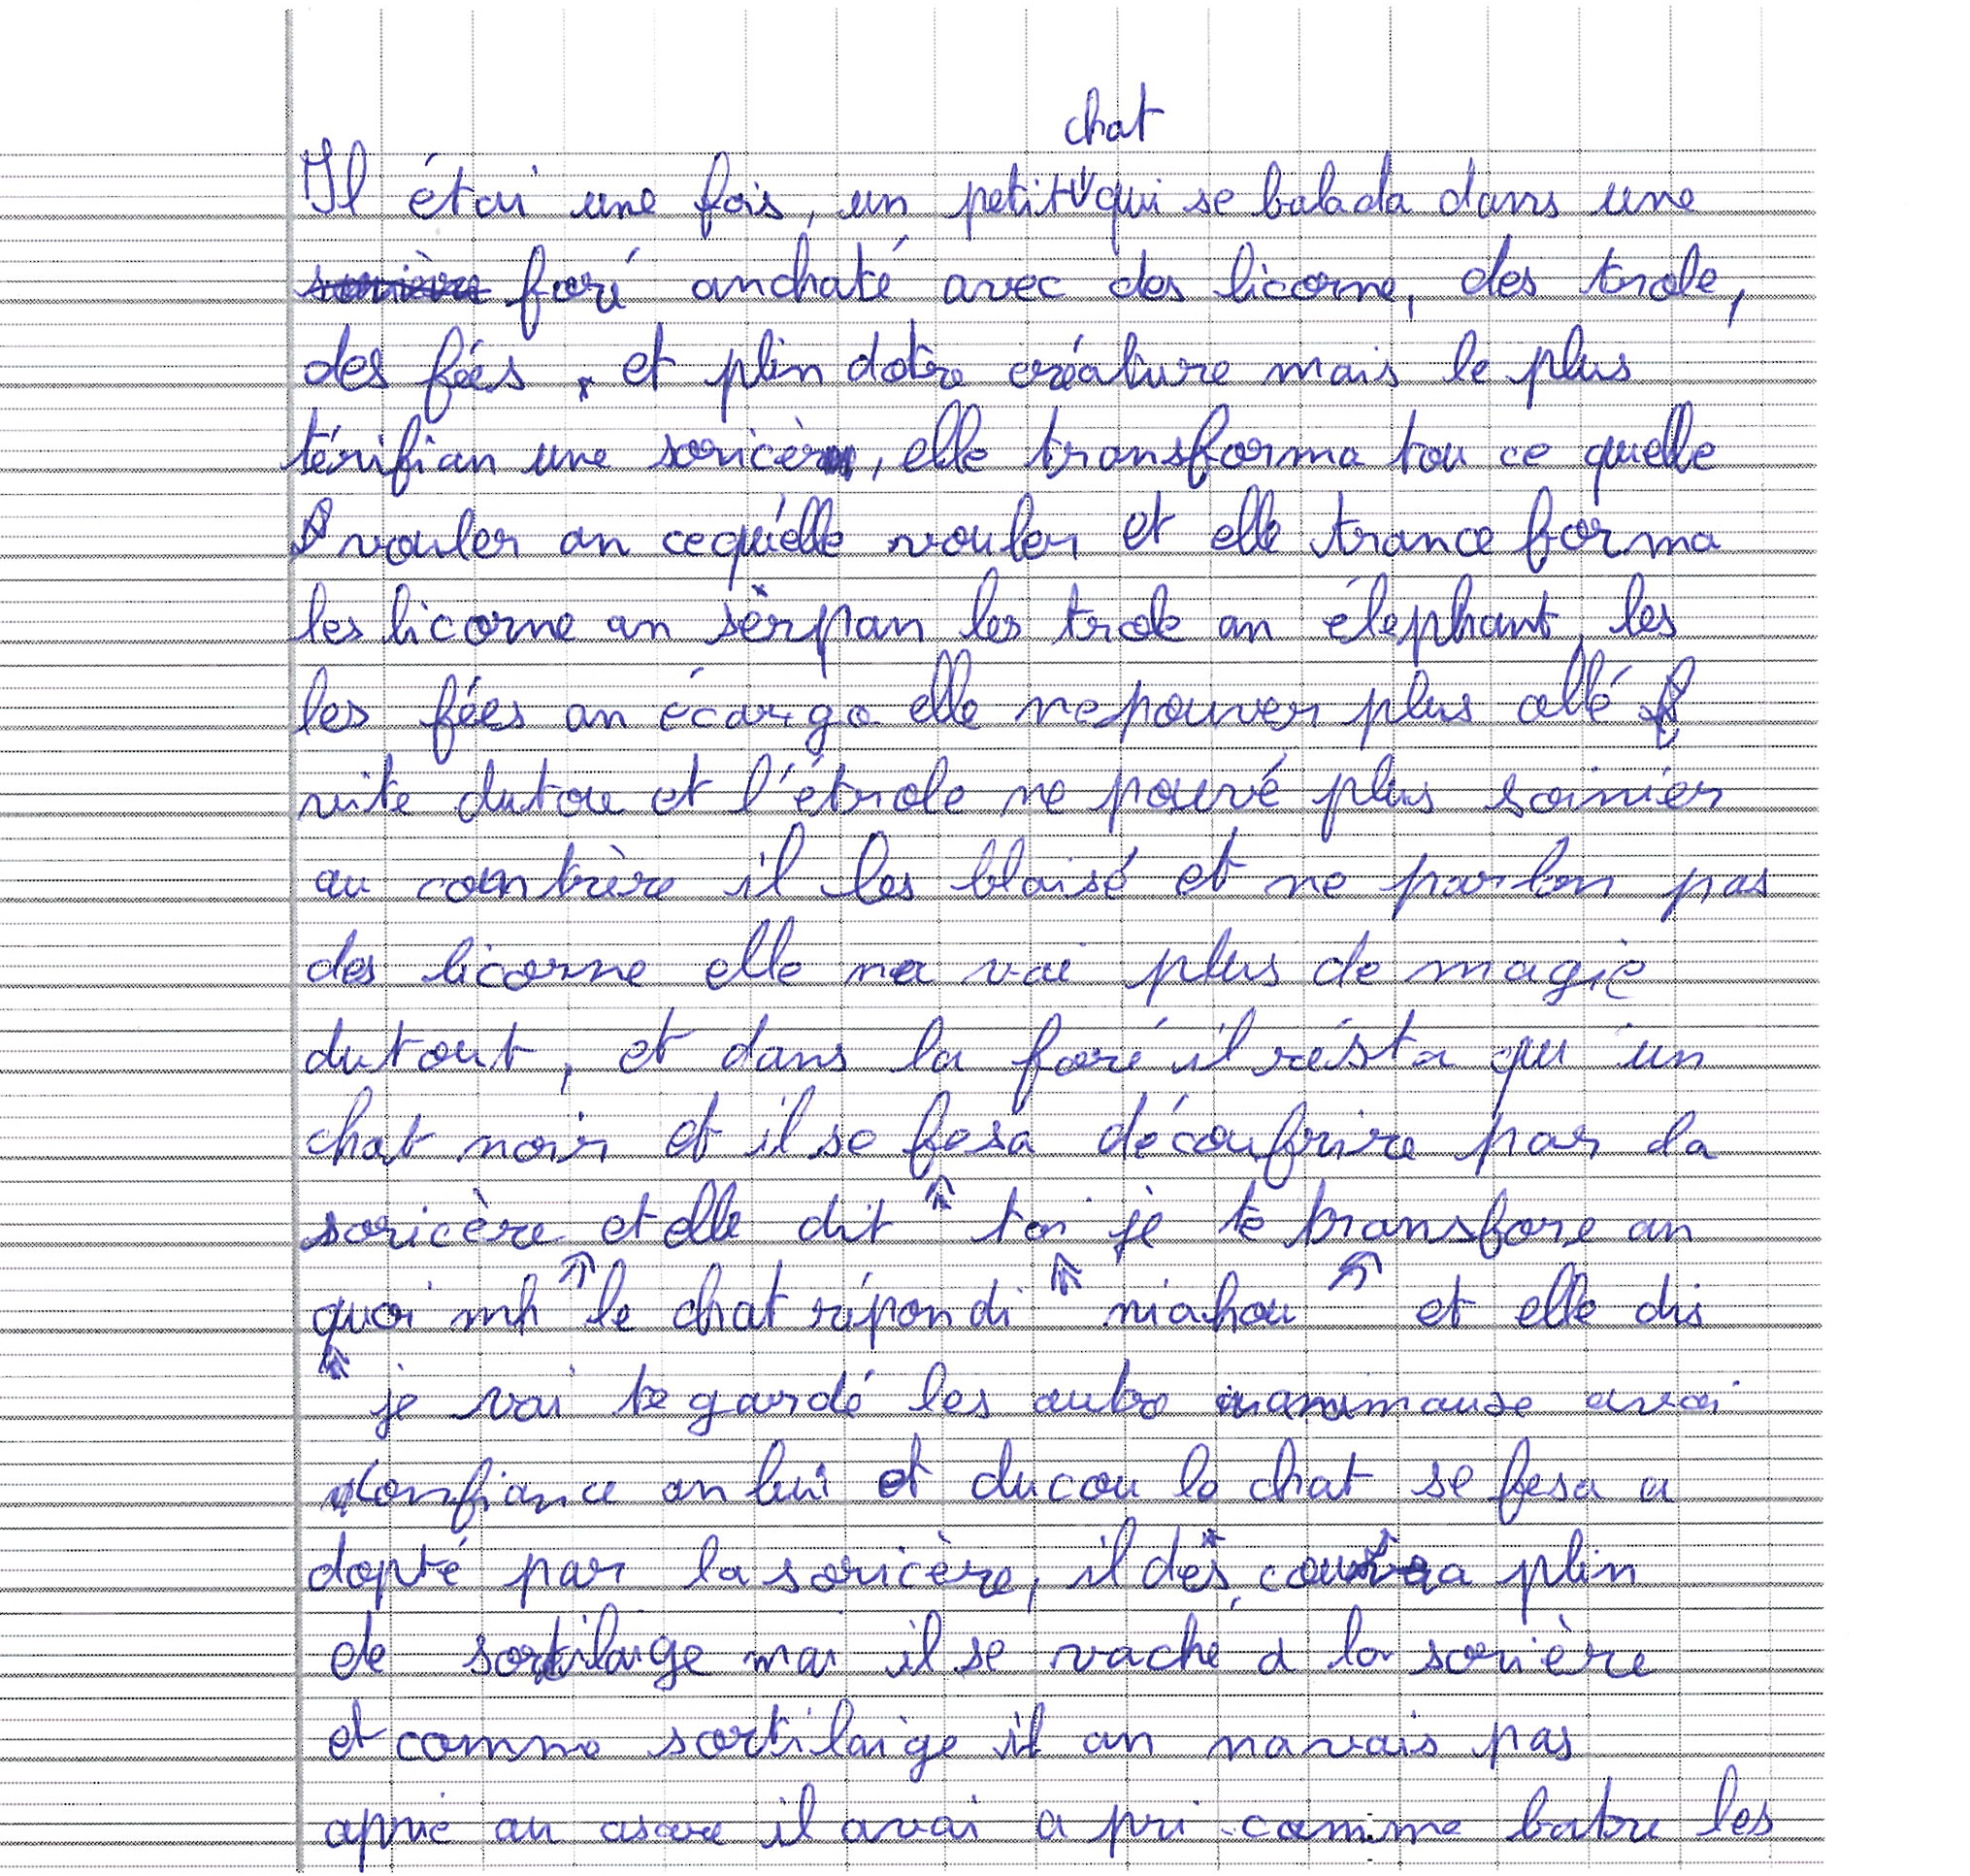 chat
Il étai une fois, un petit qui se balada dans une
sorière foré anchaté avec des licorne, des trole,
des fées, et plin dotre créature mais le plus
térifian une soricère, elle transforma tou ce quelle
vouler an cequ'elle vouler et elle trance forma
les licorne an sèrpan les trole an éléphant, les
les fées an écargo elle nepouver plus allé
vite dutou et l'étrole ne pouvé plus soinier
au contrère il les blaisé et ne parlon pas
des licorne elle na vai plus de magie
dutout, et dans la foré il résta qu un
chat noir et il se fesa découfrire par la
soricère et elle dit toi je te transfore an
quoi mh le chat répondi miahou et elle dis
je vai te gardé les autre animause avai
confiance an lui et ducou le chat se fesa a
dopté par la soricère, il dés couvra plin
de sortilaige mai il se vaché a la sorière
et comme sortilaige il an navais pas
aprie au asare il avai a pri comme batre les